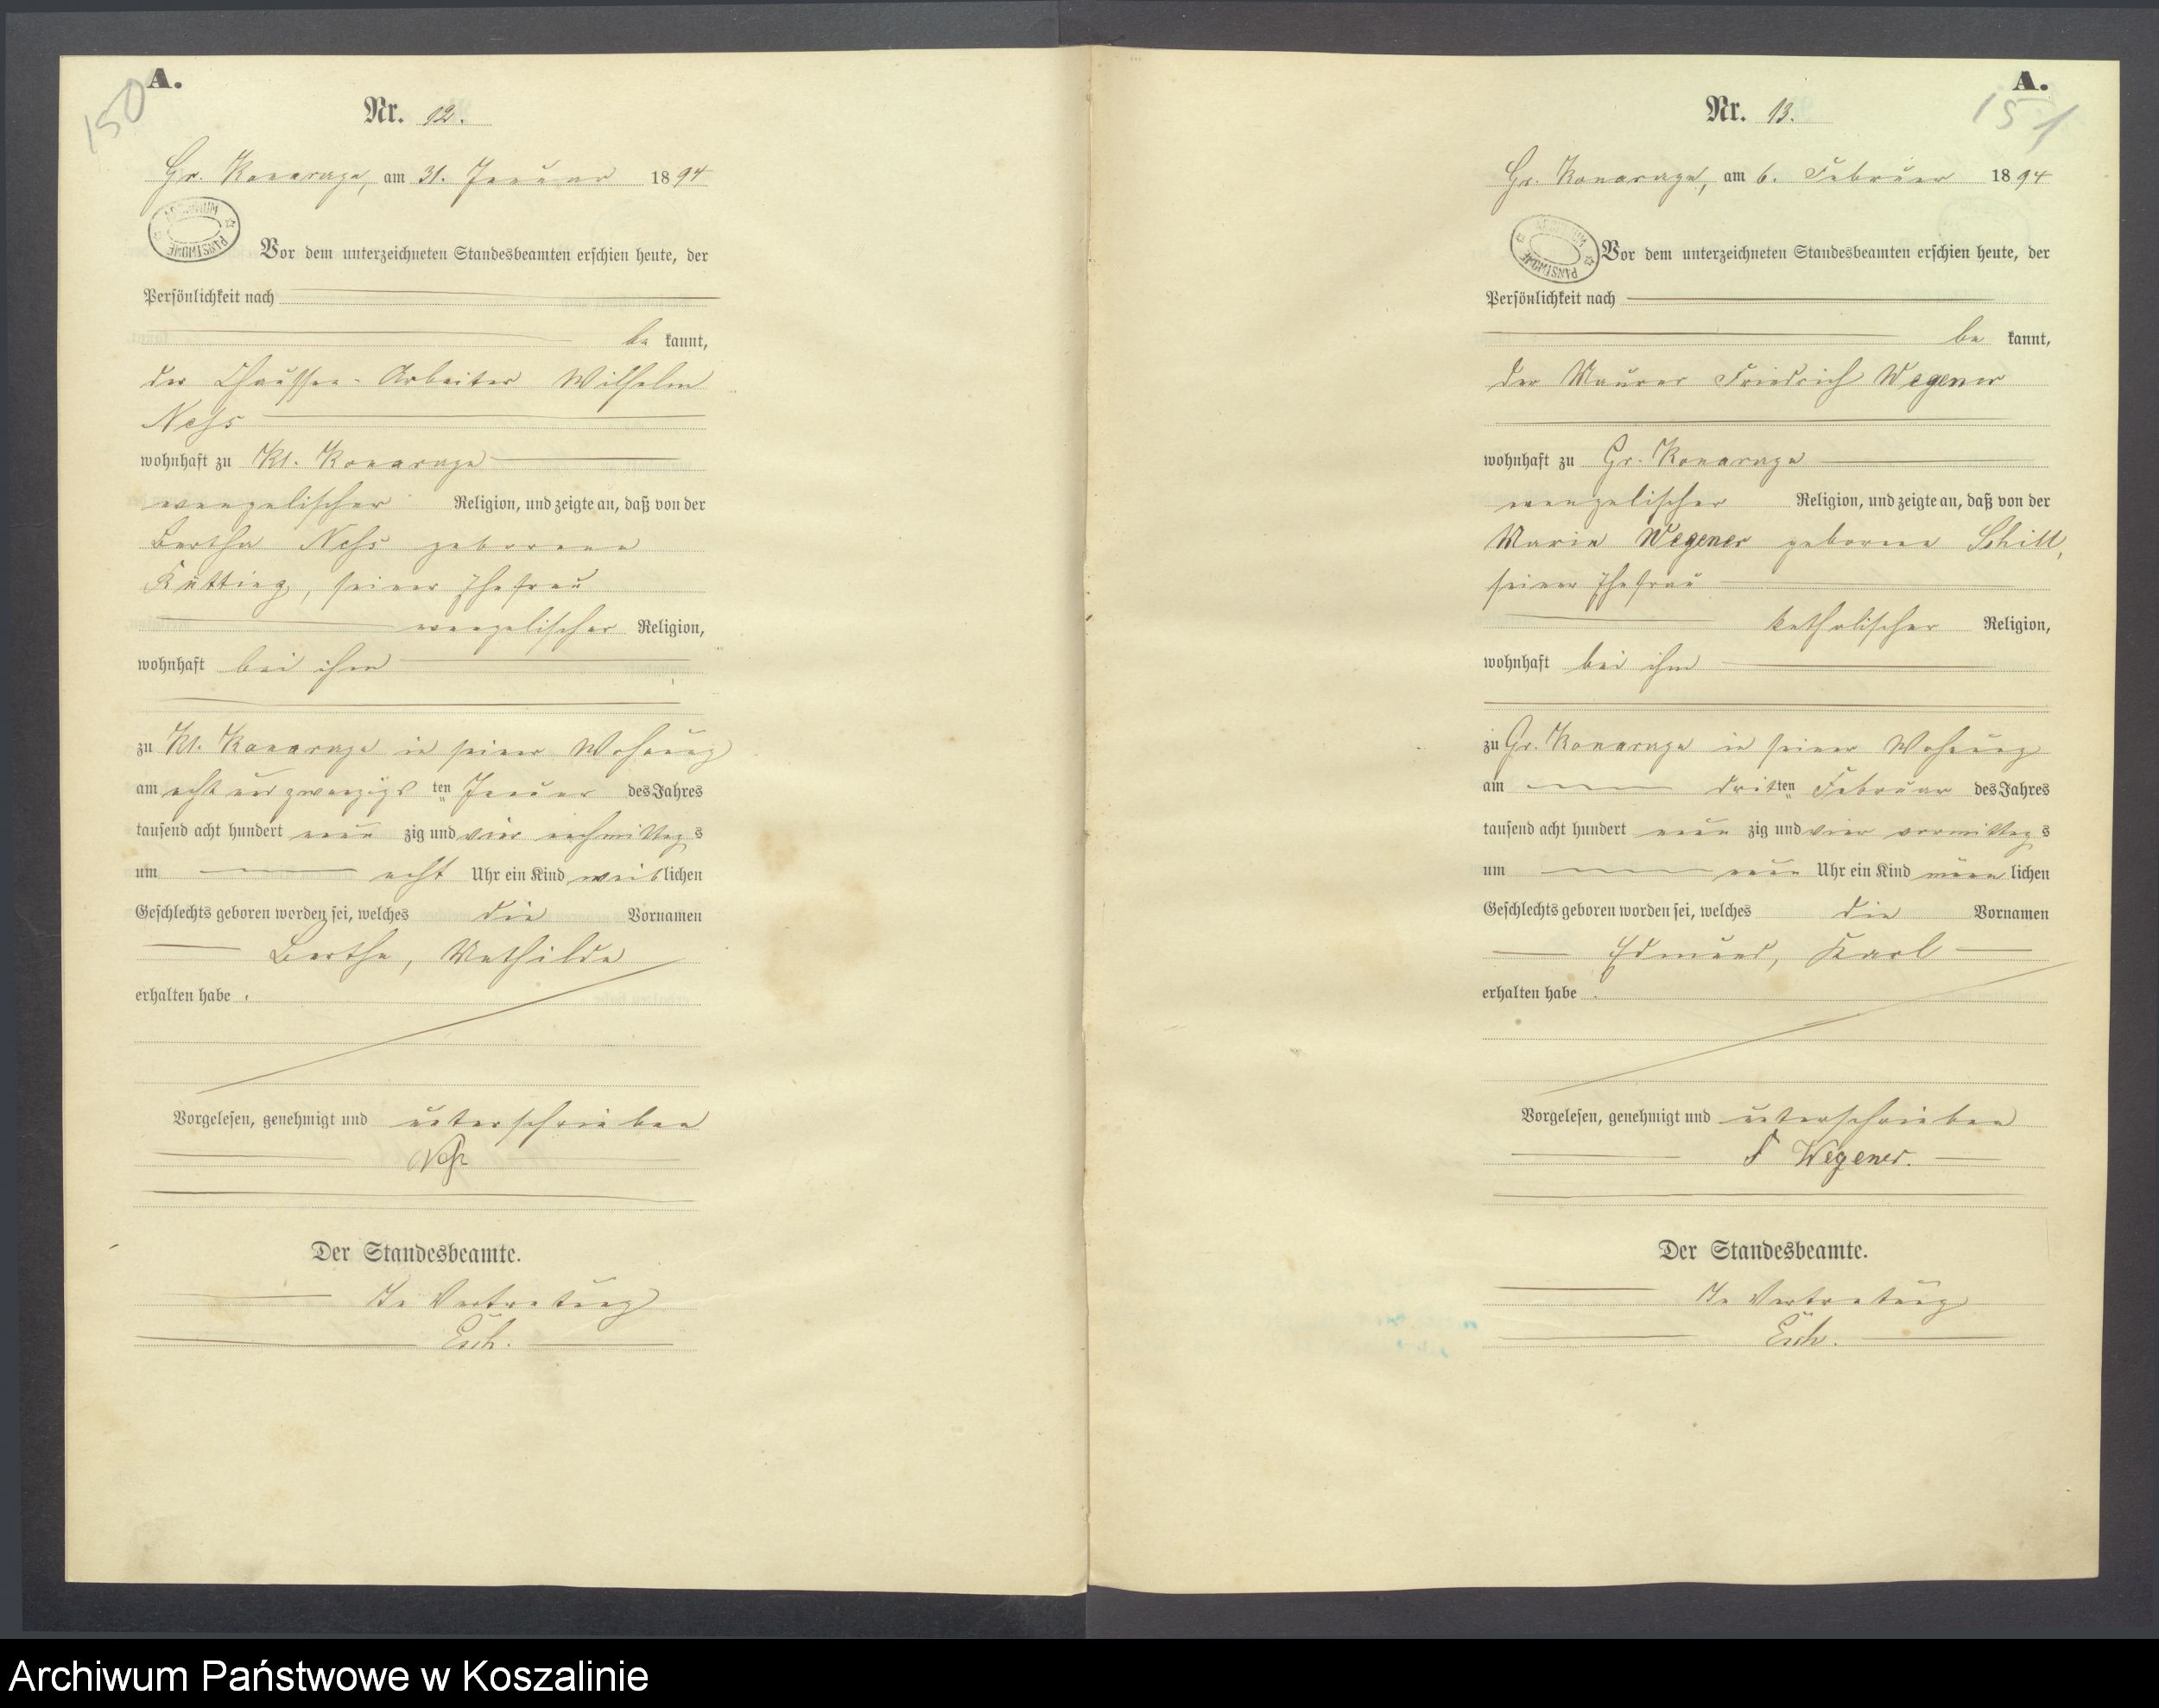 150
A.
Nr. 12.
Gr. Konarzyn, am 31. Januar 1894
ARCHIWUM PAŃSTWOWE
Vor dem unterzeichneten Standesbeamten erschien heute, der
Persönlichkeit nach
be kannt,
der Chaussee-Arbeiter Wilhelm
Nehs
wohnhaft zu Kl. Konarzyn
evangelischer Religion, und zeigte an, daß von der
Bertha Nehs geborene
seiner Ehefrau
evangelischer Religion,
wohnhaft bei ihm
zu Kl. Konarzyn in seiner Wohnung
am acht und zwanzigs ten Januar des Jahres
tausend acht hundert neun zig und vier nachmittag s
um acht Uhr ein Kind weib lichen
Geschlechts geboren worden sei, welches die Vornamen
Bertha, Mathilde
erhalten habe .
Vorgelesen, genehmigt und unterschrieben
Nehs
Der Standesbeamte.
In Vertretung
Esch.
A.
151
Nr. 13.
Gr. Konarzyn, am 6. Februar 1894
ARCHIWUM PAŃSTWOWE
Vor dem unterzeichneten Standesbeamten erschien heute, der
Persönlichkeit nach
be kannt,
der Maurer Friedrich Wegener
wohnhaft zu Gr. Konarzyn
evangelischer Religion, und zeigte an, daß von der
Marie Wegener geborne Schill,
seiner Ehefrau
katholischer Religion,
wohnhaft bei ihm
zu Gr. Konarzyn in seiner Wohnung
am dritten Februar des Jahres
tausend acht hundert neun zig und vier vormittag s
um neun Uhr ein Kind männ lichen
Geschlechts geboren worden sei, welches die Vornamen
Edmund, Karl
erhalten habe .
Vorgelesen, genehmigt und unterschrieben
F Wegener.
Der Standesbeamte.
In Vertretung
Esch.
Archiwum Państwowe w Koszalinie